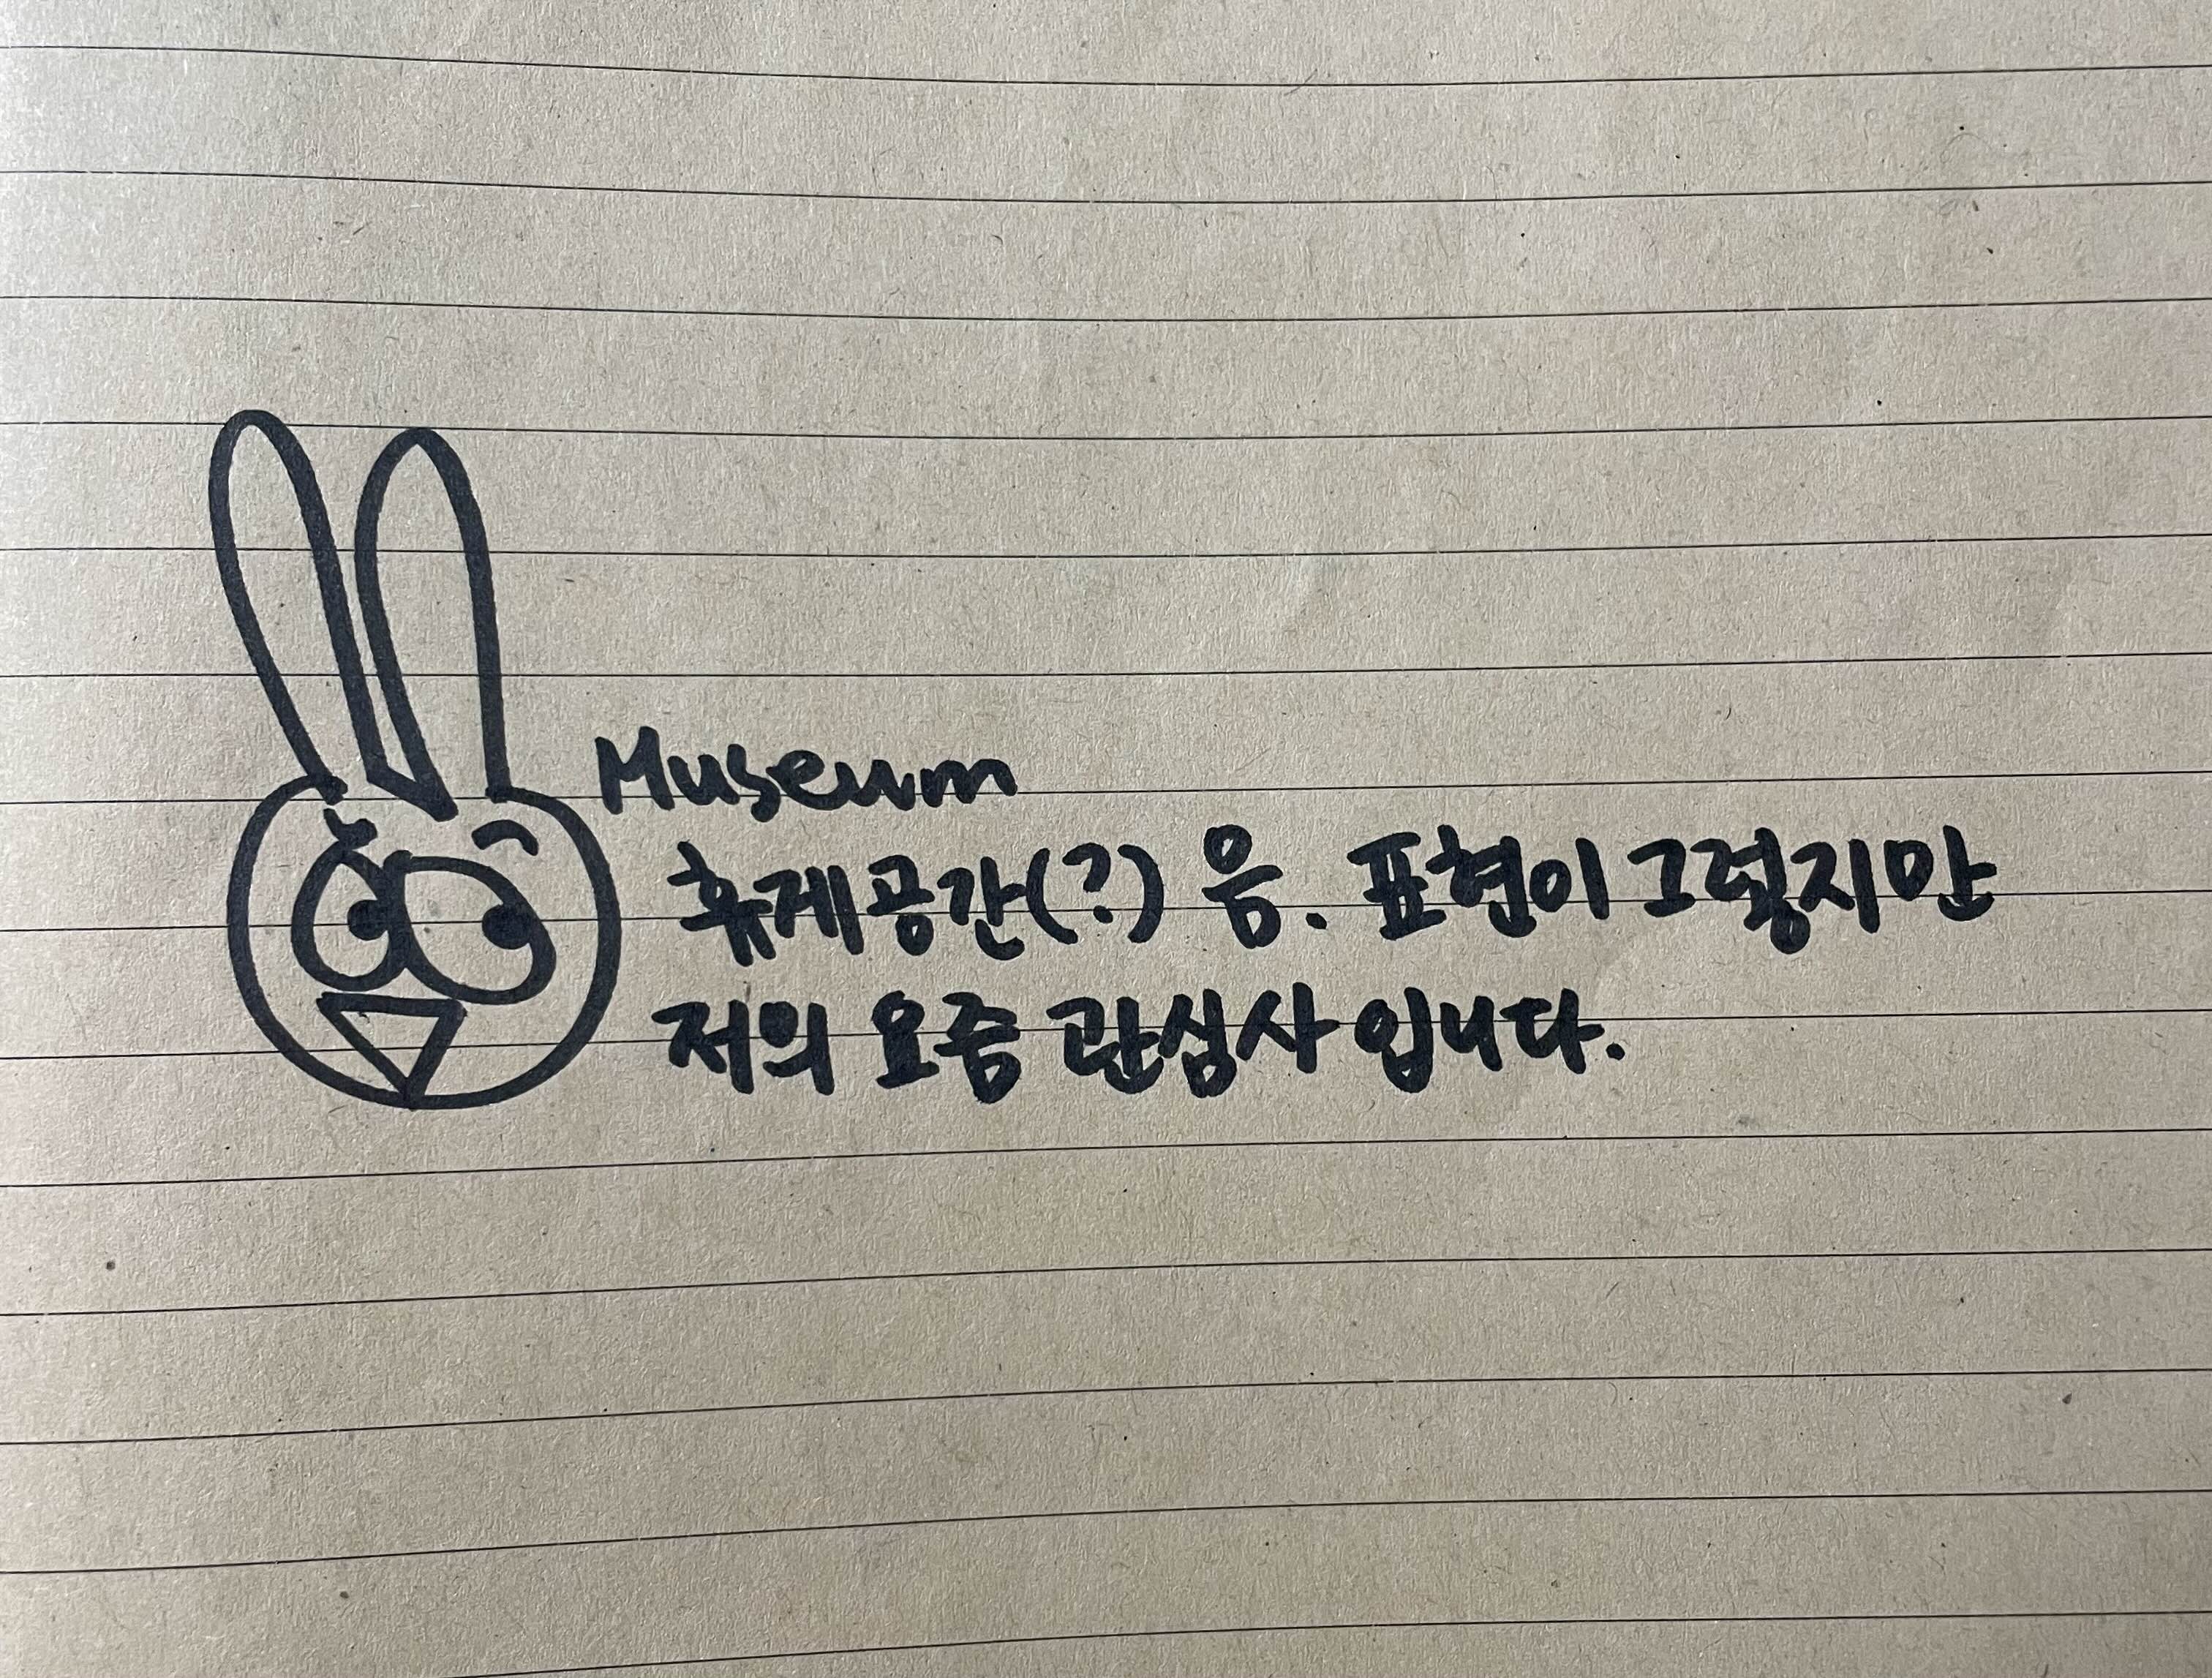 Museum
휴게공간(?) 음. 표현이 그렇지만
저의 요즘 관심사 입니다.